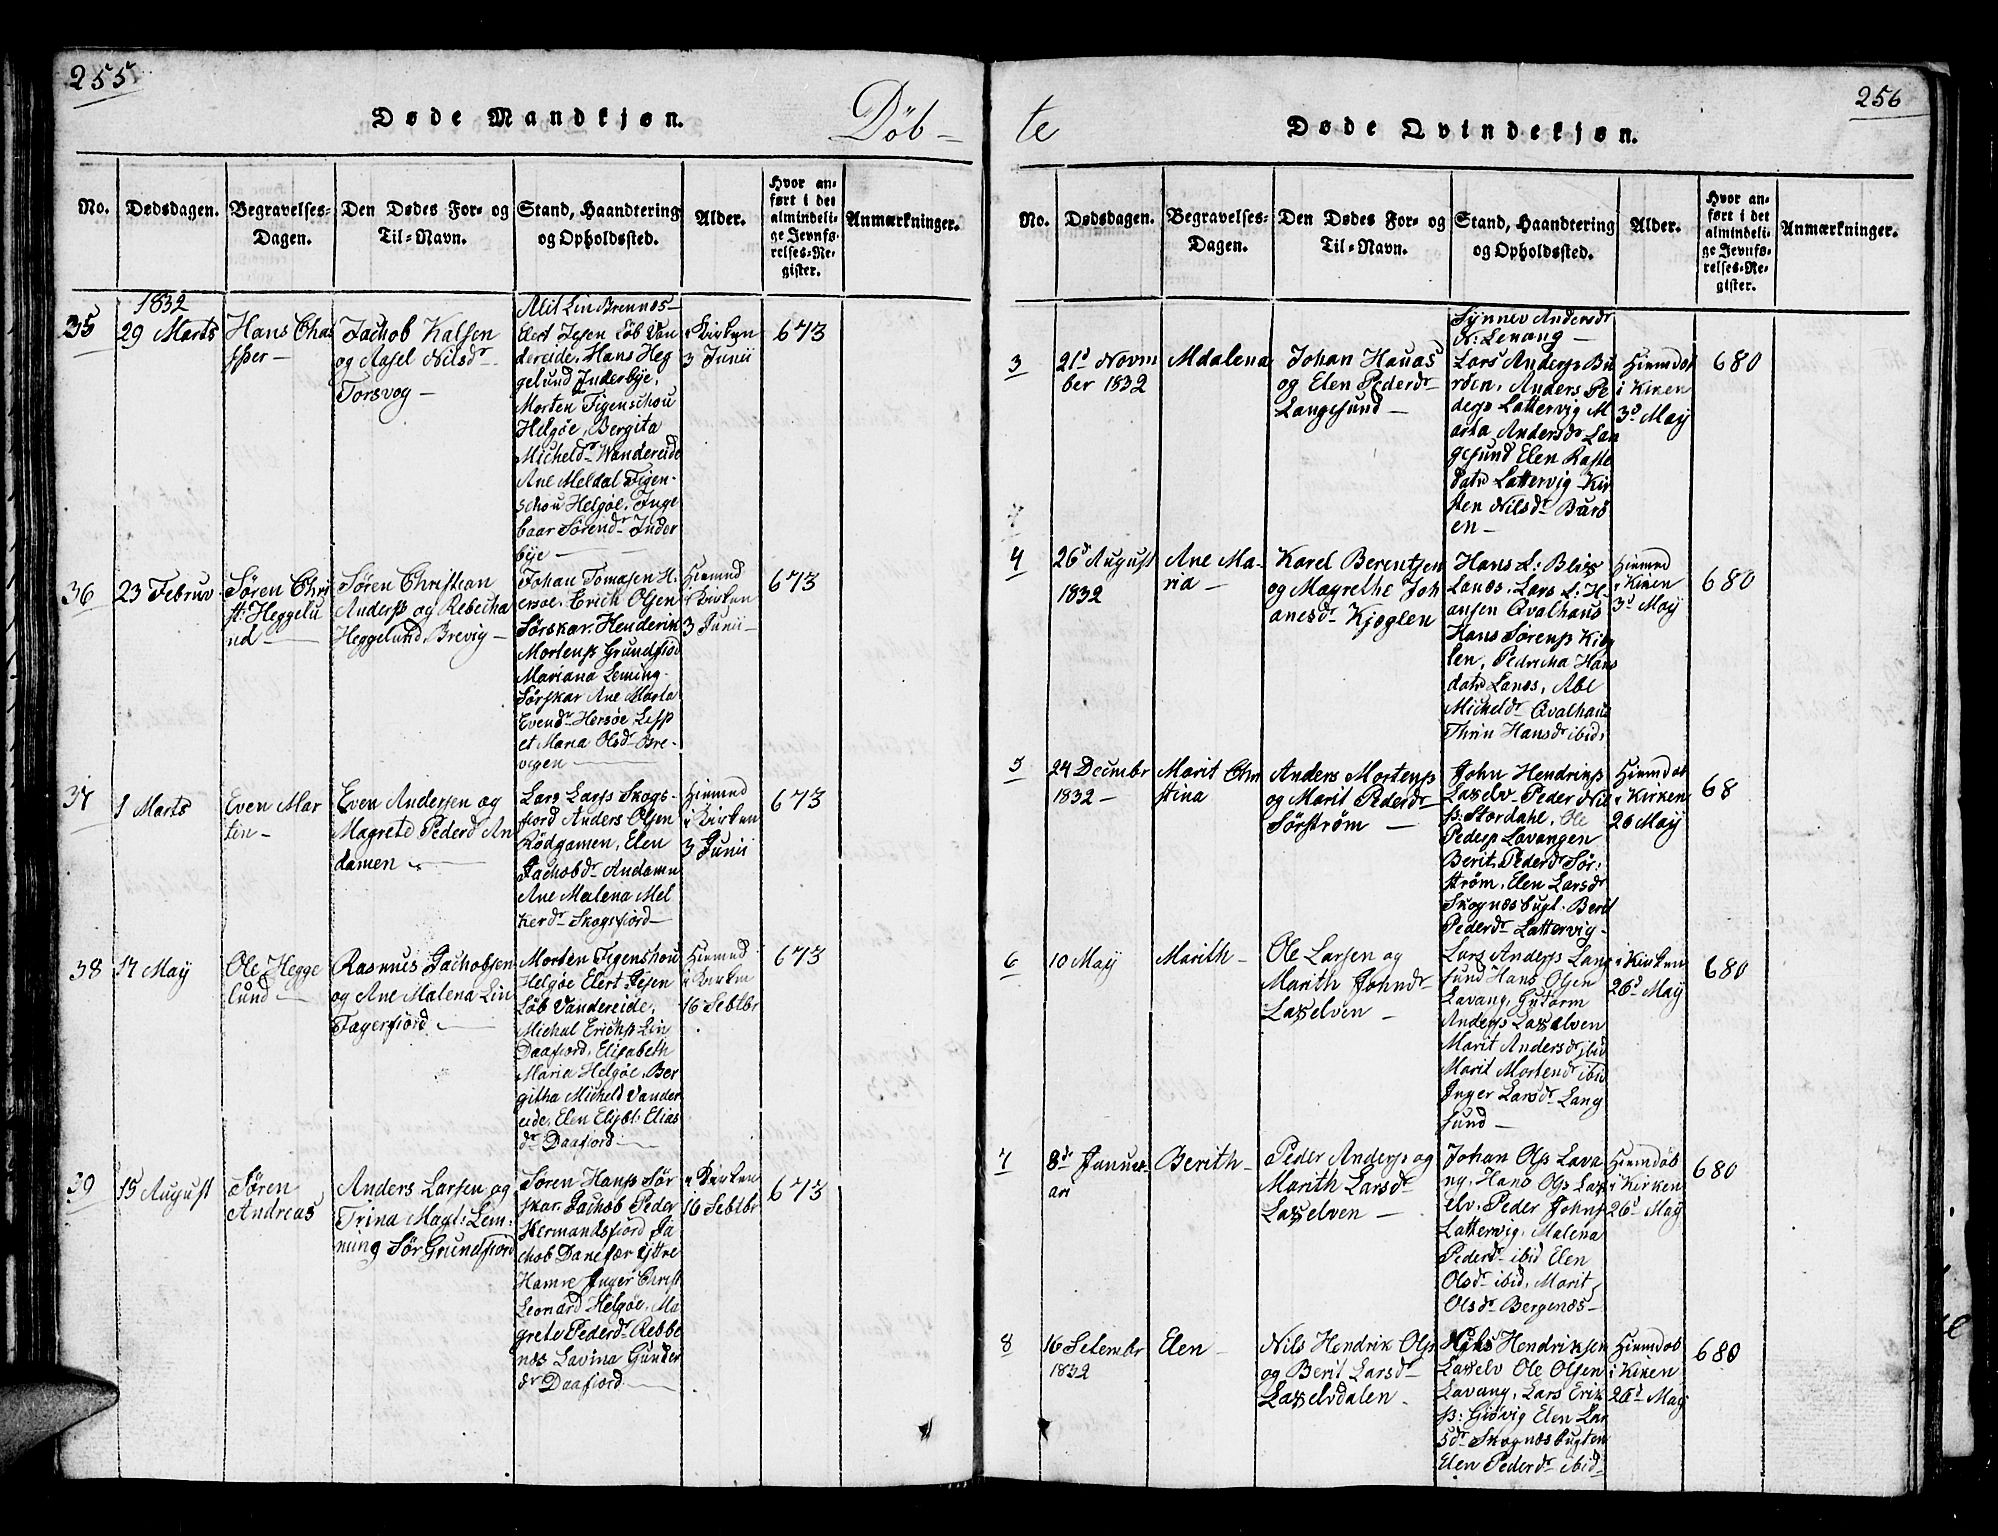 255
Døde Mandkjøn.
Døb-
No.
Dødsdagen.
Begravelses-
Dagen.
Den Dødes For- og
Til-Navn.
Stand, Haandtering
og Opholdssted.
Alder.
Hvor an-
ført i det
almindeli-
ge Jevnfø-
relses-Re-
gister.
Anmærkninger.
35
1832
29 Marts
Hans Chas
sper -
Jachob Kalsen
og Aasel Nilsdr
Torsvog -
Lin Brennes-
Eert Jesen Løb Van
dereide, Hans Heg
gelund Inderbye,
Morten Figenschou
Helgøe, Bergita
Micheldr Wandereide
Ane Meldal Figen-
schou Helgøe, Inge
baar Sørendr Inder
bye
i Kirken
3 Junii
673
36
23 Februv
Søren Chri
st: Heggelu
nd -
Søren Christian
Anderss og Rebecha
Heggelund Brevig -
Johan Tomasen H.
ersøe, Erich Olsen
Sørskar, Henderik
Mortens Grundfiord
Mariana Leming-
Sørskar Ane Magta
Evendr Hersøe
et Maria Olsdr Bre-
vigen
Hiemed
i Kirken
3 Junii -
673
37
1 Marts
Even Mar
tin -
Even Andersen og
Magrete Pederd An
damen
Lars Larss Skogs-
fiord Anders Olsen
Rødgamen, Elen
Jachobdr Andamn
Ane Malena Mel
kerdr Skogsfiord
Hiemed
i Kirken
3 Junii
673
38
17 May
Ole Hegge
lund -
Rasmus Jachobsen
og Ane Malena Lin
Fagerfiord
Morten Figenshou
Helgøe Elert Jesen
Løb Vandereide,
Michal Erichs Lin
Daafiord, Elisabeth
Maria Helgøe, Ber
githa Micheld Vander
eide, Elen Elisbt: Elias
dr Daafiord
Hiemed
i Kirken
16 Sebtbr
673
39
15 August
Søren
Andreas
Anders Larsen og
Trina Magt: Lem-
ning Sør Grundfiord
Søren Hanss Sør
skar, Jachob Peder
Hermandsfiord Ja
chob Danefær Yttre
Hamre Inger Christ
Leonard Helgøe, Ma
grete Pederdr Rebbe
næs Lavina Gunder
dr Daafiord
i Kirken
16 Sebtbr
673
256
te
Døde Qvindekjøn.
No.
Dødsdagen.
Begravelses-
Dagen.
Den Dødes For- og
Til-Navn.
Stand, Haandtering
og Opholdssted.
Alder.
Hvor an-
ført i det
almindeli-
ge Jevnfø-
relses-Re-
gister.
Anmærkninger.
3
21d Novm
ber 1832
Mdalena
Johan Hanas
og Elen Pederdr
Langesund -
Synnev Andersdr
N: Lenang -
Lars Anderss Bu
røen, Anders Pe
derss Lattervig M
aria Andersdr Lan
gesund Elen Raste
datr Lattervig Kir
sten Nilsdr Burø
en -
Hiemdøb
i Kirken
3d May
680
4
26d August
1832
Ane Ma-
ria -
Karel Berentsen
og Magrethe Joh
anesdr Kjoglen
Hans L: Blix
Lanes, Lars L: H-
ansen Qvalhaus
Hans Sørenss Kiog
len, Pedricha Hans
datr Lanes, Abl
Micheldr Qvalhaus
Thrin Hansdr ibid.
Hiemed
i Kirken
3d May
680
5
24 Decembr
1832 -
Marit Chri
stina
Anders Mortens
og Marit Pederdr
Sørstrøm -
John Hendriks
Laxelv Peder Nil
s: Stordahl, Ole
Peders Lavangen
Berit Pederdr Sør:
strøm, Elen Larsdr
Skognesbugt. Berit
Pederdr Lattervig-
Hiemdøb
i Kirken
26 May
68
6
10 May
Marith -
Ole Larsen og
Marith Johndr
Laxelven -
Lars Anderss Lang
sund Hans Olsen
Lavang, Gutorm
Anderss Laxelven
Marit Andersdr ibid
Marit Mortend ibid
Inger Larsdr Lang
sund -
i Kirken
26d May
680
7
8de Janua-
ari
Berith -
Peder Anderss og
Marith Larsdr
Laxelven -
Johan Olss Lava
ng, Hans Olss Lax
elv, Peder Johns
Lattervig, Malena
Pederdr ibid Elen
Olsdr ibid, Marit
Olsdr Bergenæs -
Hiemdøb
i Kirken
26d May
680
8
16 Setembr
1832
Elen -
Nils Hendrik Ols
og Berit Larsdr
Laxelvdalen.
Nils Hendriksen
Laxelv Ole Olsen
Lavang, Lars Erik
s: Giøvig Elen Lar
sdr Skognæsbugten
Elen Pederdr ibid-
Hiemdøb
i Kirken
26d May
680